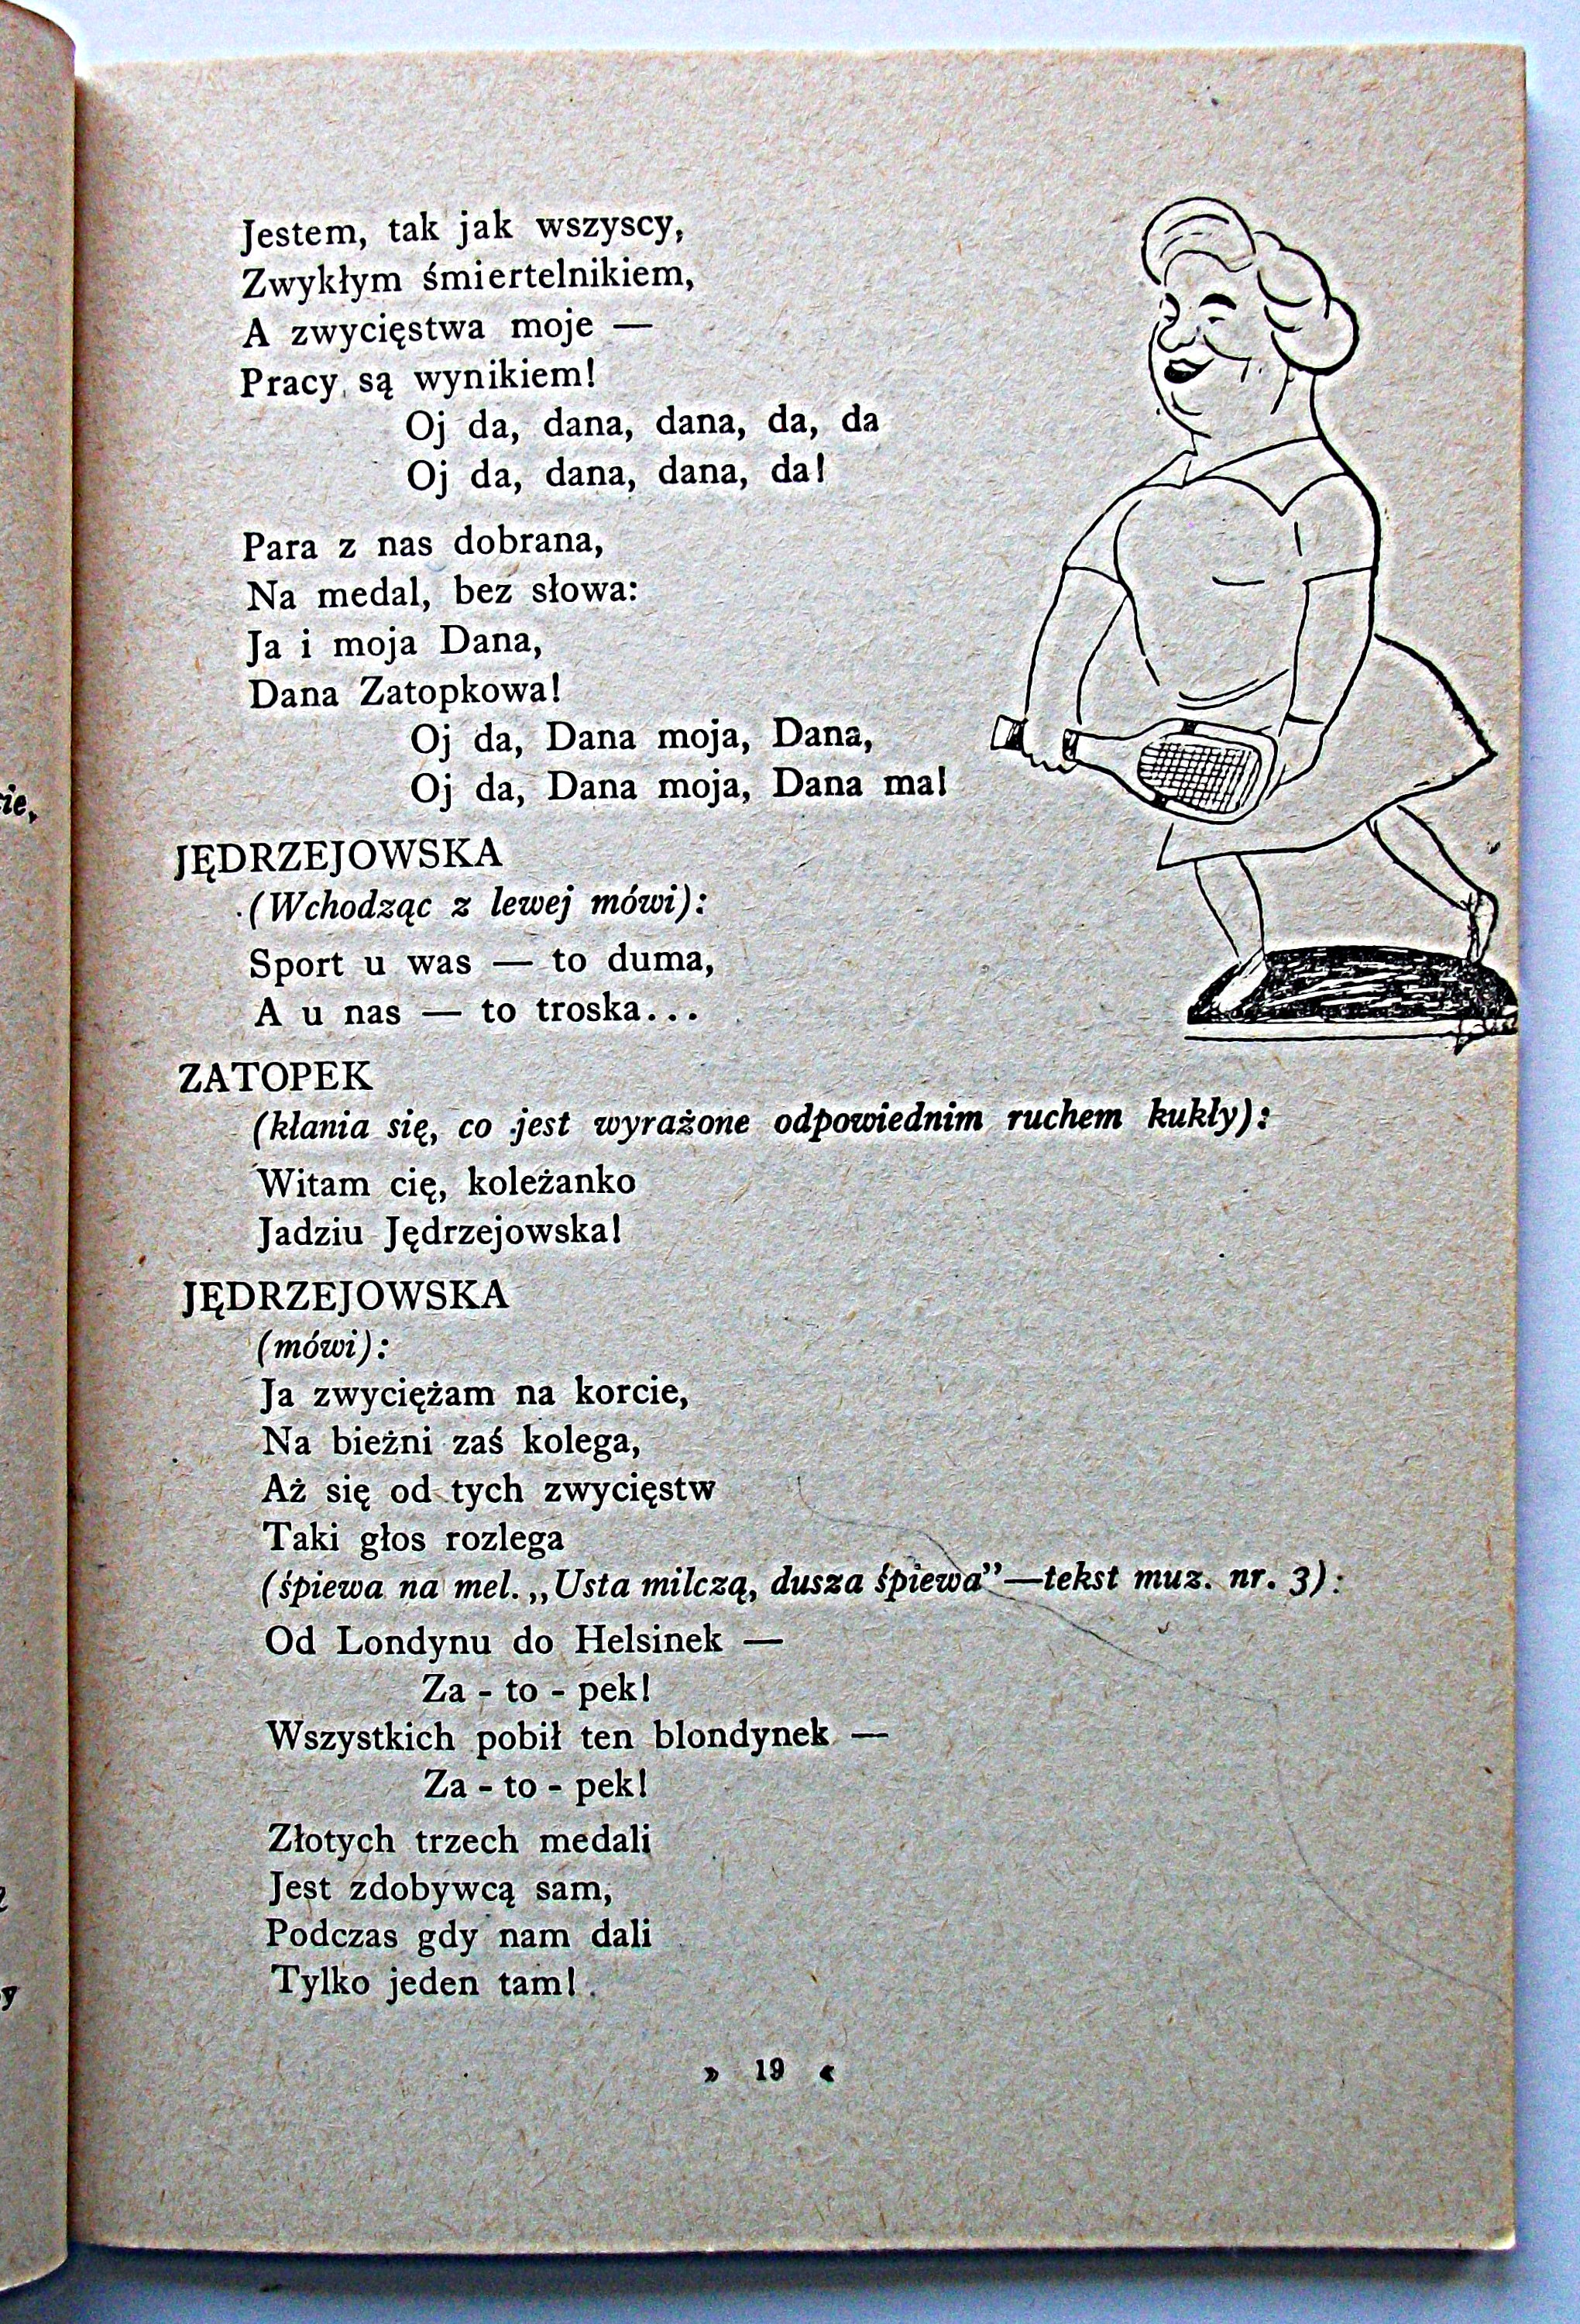 Jestem, tak jak wszyscy,
Zwykłym śmiertelnikiem,
A zwycięstwa moje —
Pracy są wynikiem!
Oj da, dana, dana, da, da
Oj da, dana, dana, da!
Para z nas dobrana,
Na medal, bez słowa:
Ja i moja Dana,
Dana Zatopkowa!
Oj da, Dana moja, Dana,
Oj da, Dana moja, Dana ma!
JĘDRZEJOWSKA
(Wchodząc z lewej mówi):
Sport u was — to duma,
A u nas — to troska...
ZATOPEK
(kłania się, co jest wyrażone odpowiednim ruchem kukły):
Witam cię, koleżanko
Jadziu Jędrzejowska!
JĘDRZEJOWSKA
(mówi):
Ja zwyciężam na korcie,
Na bieżni zaś kolega,
Aż się od tych zwycięstw
Taki głos rozlega
(śpiewa na mel. „Usta milczą, dusza śpiewa”—tekst muz. nr. 3):
Od Londynu do Helsinek —
Za - to - pek!
Wszystkich pobił ten blondynek —
Za - to - pek!
Złotych trzech medali
Jest zdobywcą sam,
Podczas gdy nam dali
Tylko jeden tam!
» 19 «